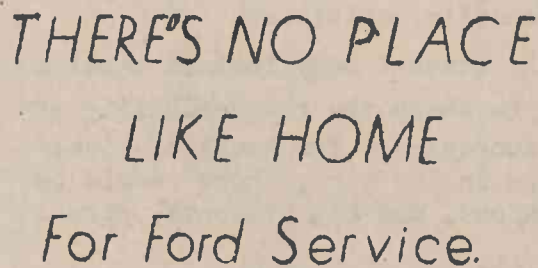 THERE'S NO PLACE
LIKE HOME
For Ford Service.